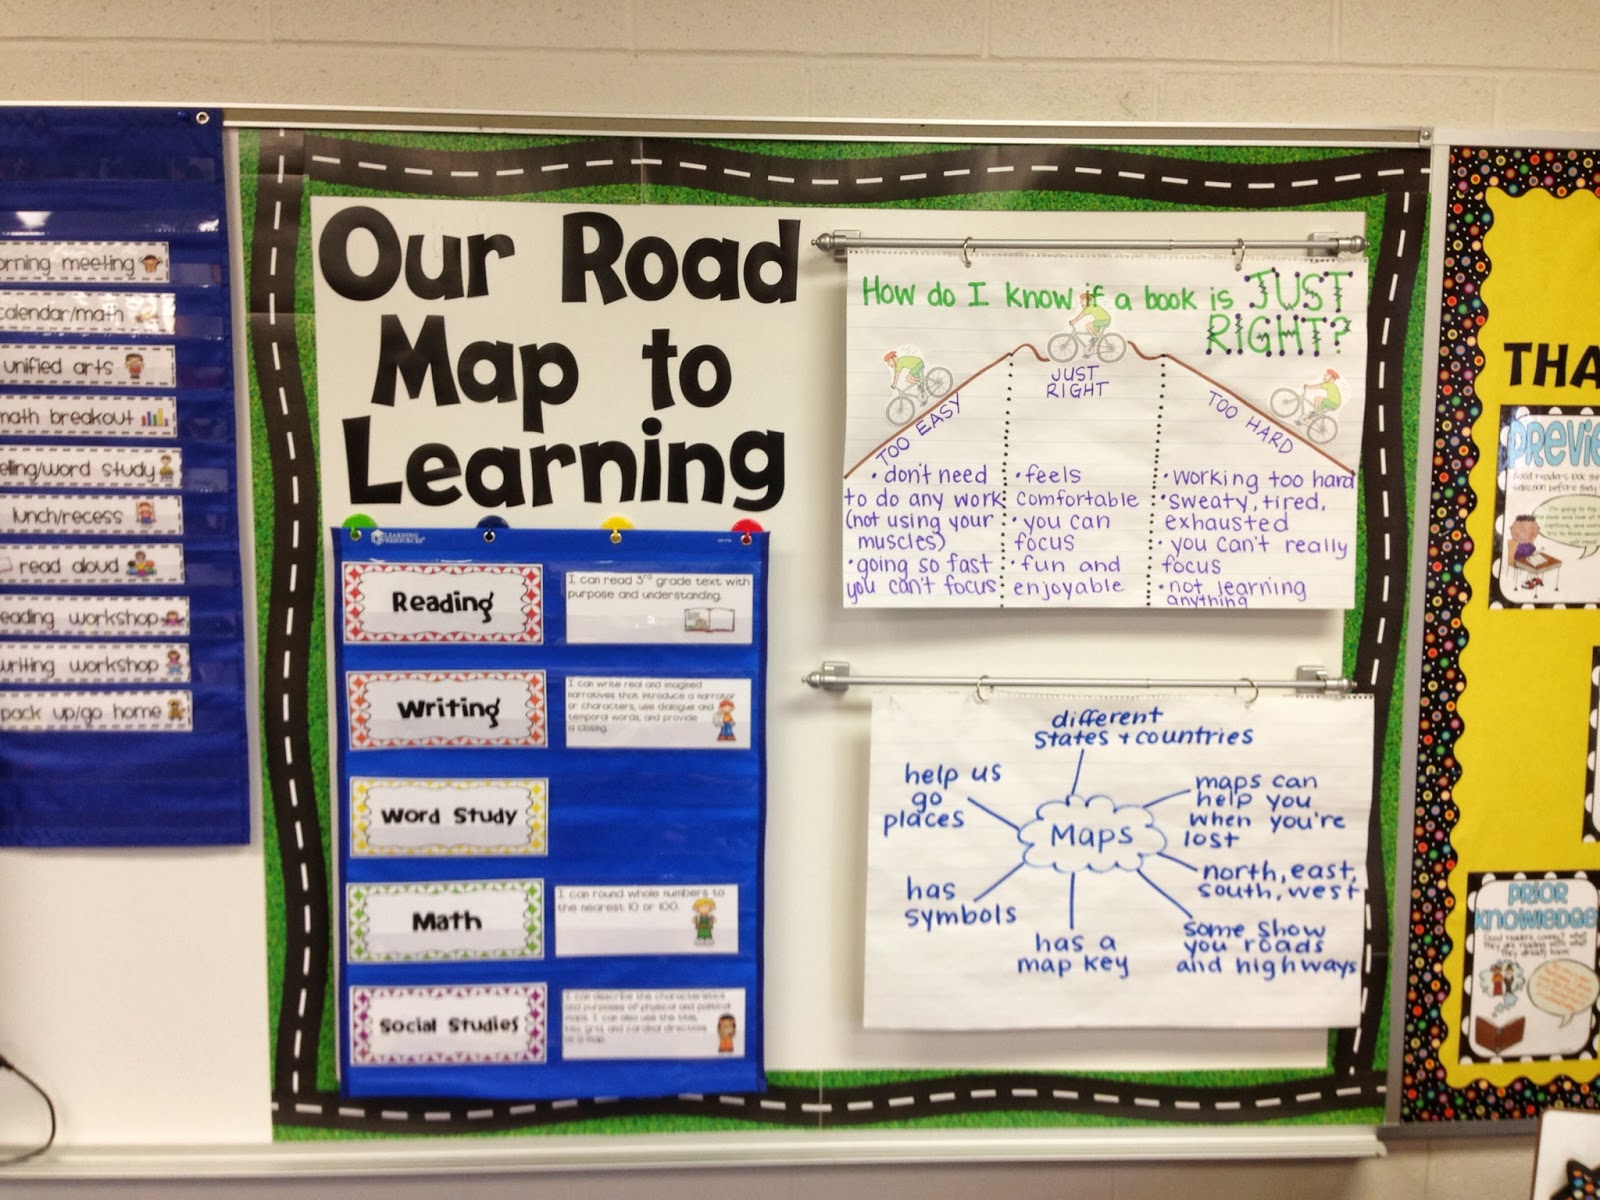 orning meeting
calendar/math
unified arts
math breakout
elling/word study
lunch/recess
read aloud
eading workshop
writing workshop
pack up/go home
Our Road
Map to
Learning
LEARNING
RESOURCES
Reading
I can read 3rd grade text with
purpose and understanding.
Writing
I can write real and imagined
narratives that introduce a narrator
or characters, use dialogue and
temporal words, and provide
a closing.
Word Study
Math
I can round whole numbers to
the nearest 10 or 100.
Social Studies
I can describe the characteristics
and purposes of physical and political
maps. I can also use the title,
key, grid, and cardinal directions
on a map.
How do I know if a book is JUST
RIGHT?
TOO EASY
• don't need
to do any work
(not using your
muscles)
• going so fast
you can't focus
JUST
RIGHT
• feels
comfortable
• you can
focus
• fun and
enjoyable
TOO HARD
• working too hard
• sweaty, tired,
exhausted
• you can't really
focus
• not learning
anything
Maps
different
states + countries
help us
go
places
maps can
help you
when you're
lost
north, east,
south, west
has
symbols
has a
map key
some show
you roads
and highways
THA
PREVIE
PRIOR
KNOWLEDGE